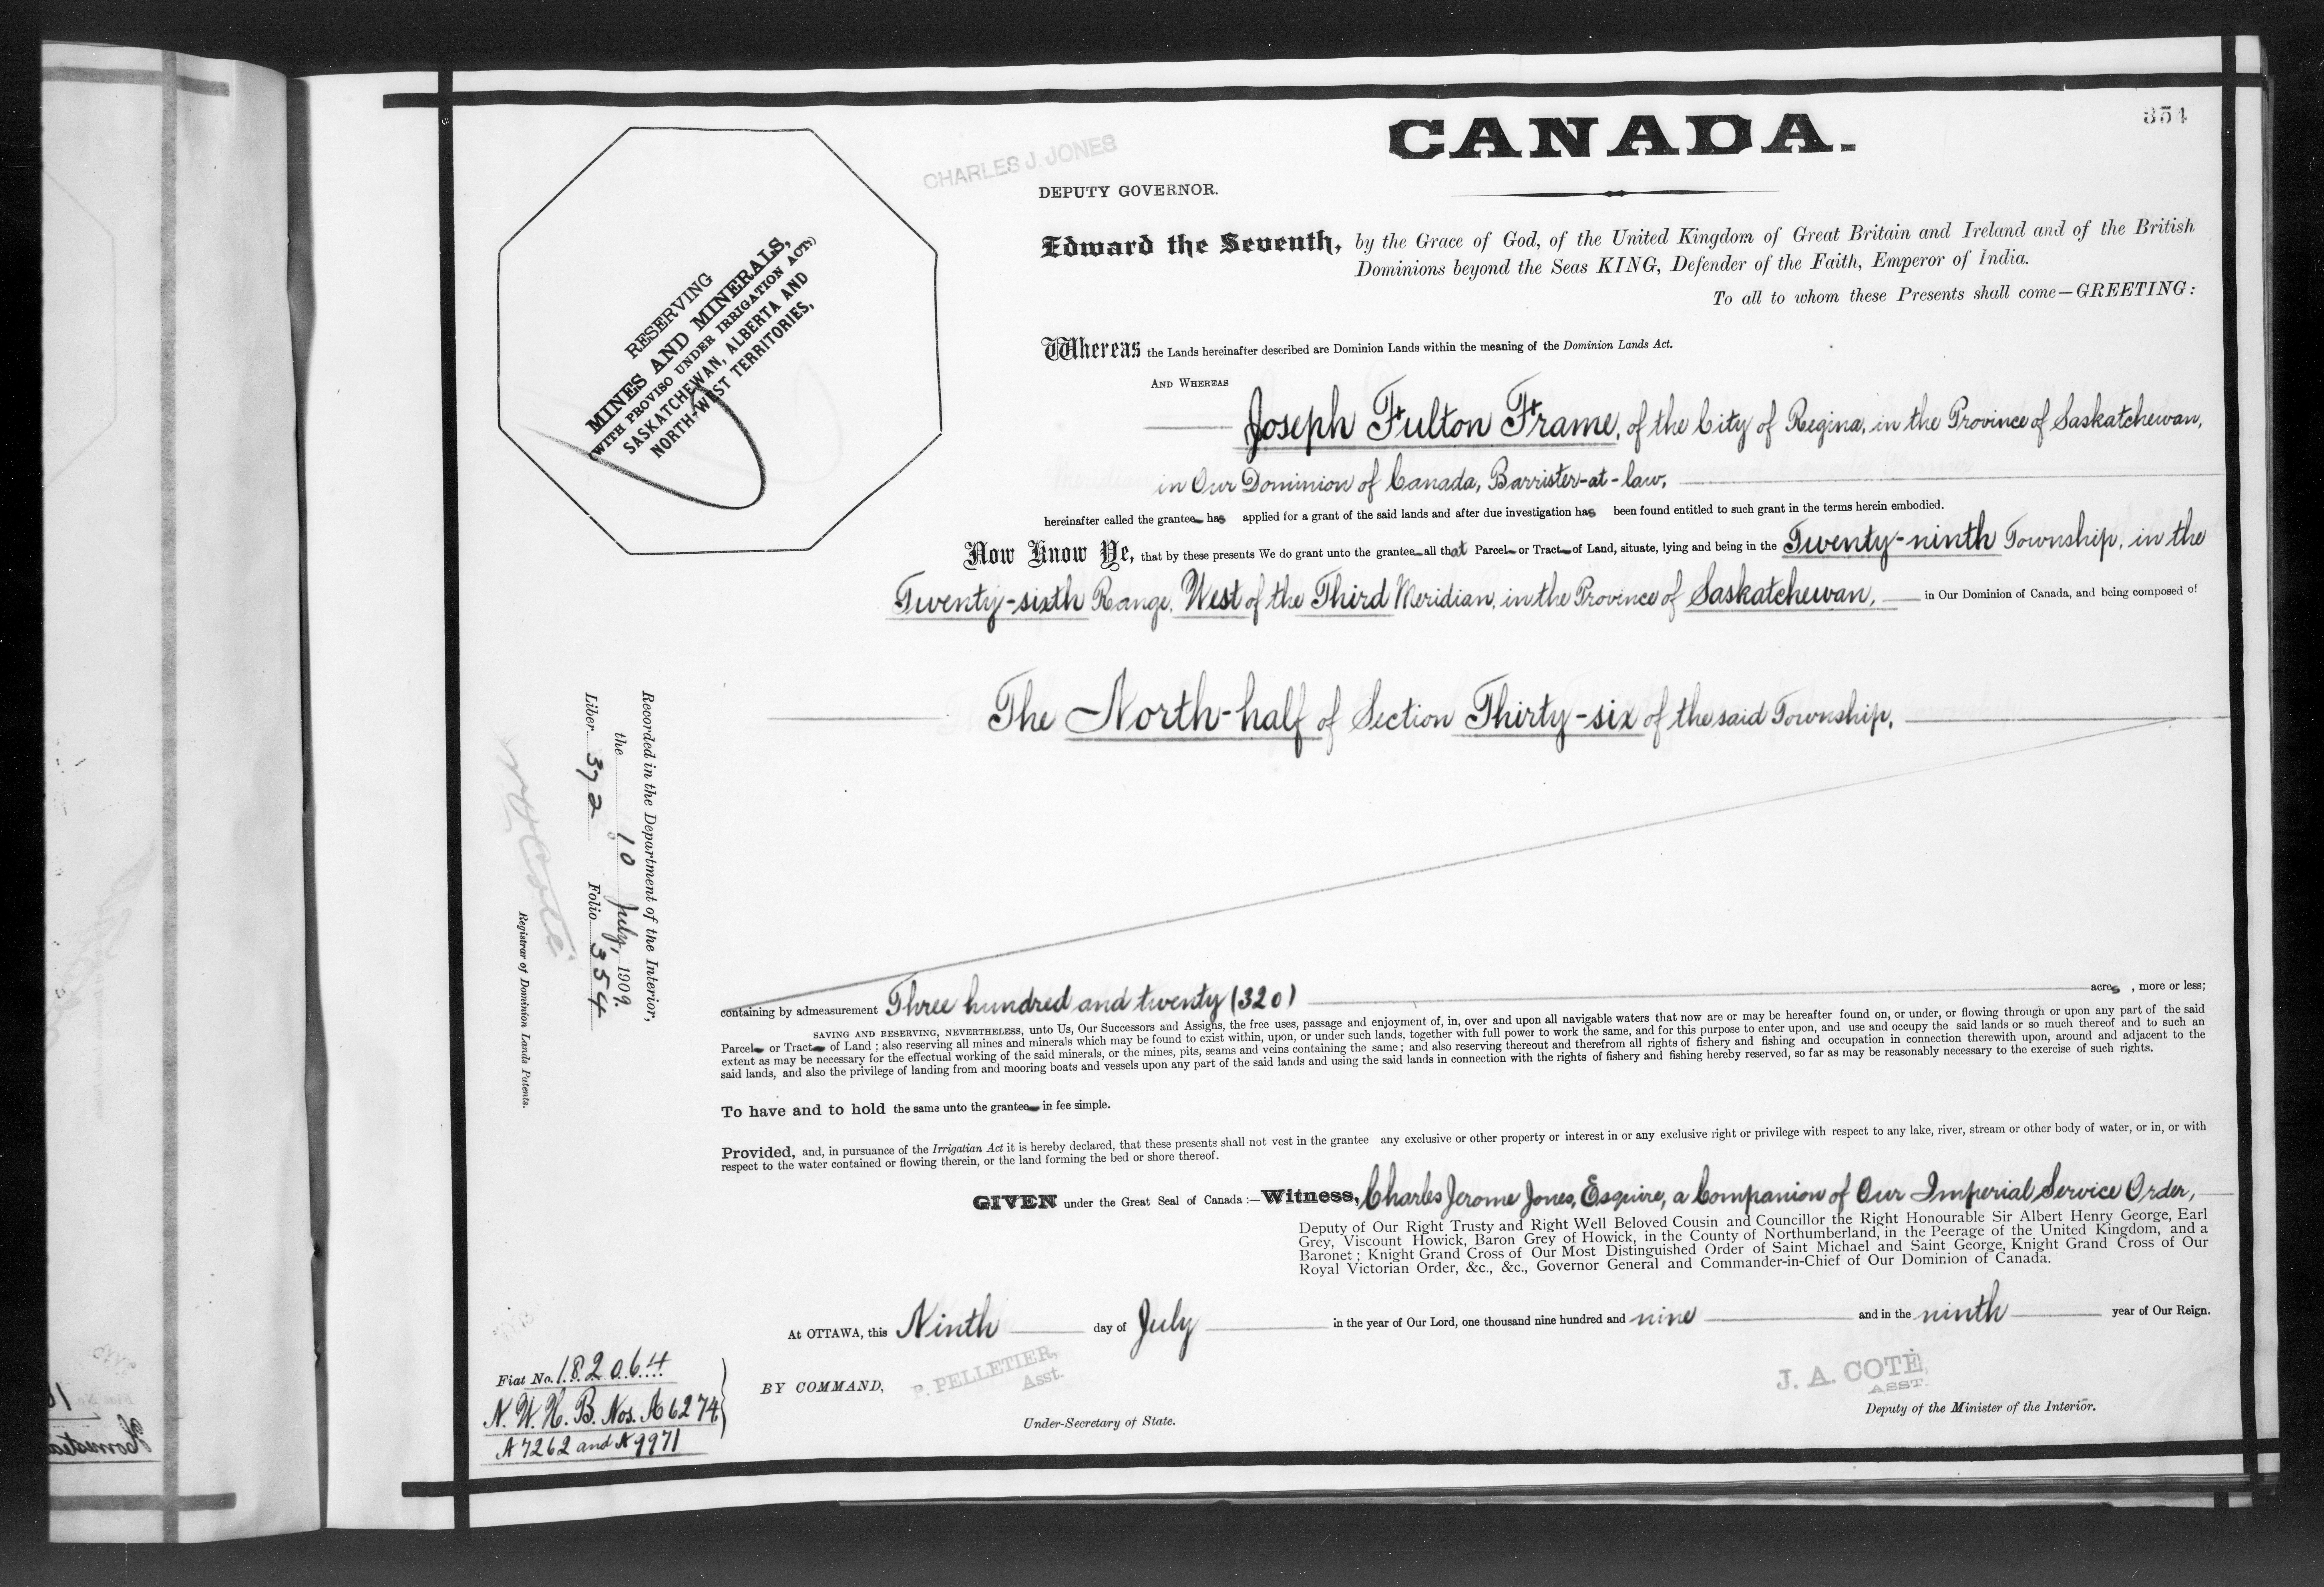 CANADA.
354
CHARLES J. JONES
DEPUTY GOVERNOR.
RESERVING
MINES AND MINERALS,
(WITH PROVISO UNDER IRRIGATION ACT,)
SASKATCHEWAN, ALBERTA AND
NORTH-WEST TERRITORIES,
Edward the Seventh, by the Grace of God, of the United Kingdom of Great Britain and Ireland and of the British
Dominions beyond the Seas KING, Defender of the Faith, Emperor of India.
To all to whom these Presents shall come—GREETING:
Whereas the Lands hereinafter described are Dominion Lands within the meaning of the Dominion Lands Act.
AND WHEREAS
Joseph Fulton Frame, of the City of Regina, in the Province of Saskatchewan,
in Our Dominion of Canada, Barrister-at-law,
hereinafter called the grantee has applied for a grant of the said lands and after due investigation has been found entitled to such grant in the terms herein embodied.
Now Know Ye, that by these presents We do grant unto the grantee all that Parcel or Tract of Land, situate, lying and being in the Twenty-ninth Township, in the
Twenty-sixth Range, West of the Third Meridian, in the Province of Saskatchewan, in Our Dominion of Canada, and being composed of
The North-half of Section Thirty-six of the said Township,
Recorded in the Department of the Interior,
the 10 July, 1909.
Liber 372 Folio 354
Registrar of Dominion Lands Patents.
containing by admeasurement Three hundred and twenty (320) acres, more or less;
SAVING AND RESERVING, NEVERTHELESS, unto Us, Our Successors and Assigns, the free uses, passage and enjoyment of, in, over and upon all navigable waters that now are or may be hereafter found on, or under, or flowing through or upon any part of the said
Parcel or Tract of Land; also reserving all mines and minerals which may be found to exist within, upon, or under such lands, together with full power to work the same, and for this purpose to enter upon, and use and occupy the said lands or so much thereof and to such an
extent as may be necessary for the effectual working of the said minerals, or the mines, pits, seams and veins containing the same; and also reserving thereout and therefrom all rights of fishery and fishing and occupation in connection therewith upon, around and adjacent to the
said lands, and also the privilege of landing from and mooring boats and vessels upon any part of the said lands and using the said lands in connection with the rights of fishery and fishing hereby reserved, so far as may be reasonably necessary to the exercise of such rights.
To have and to hold the same unto the grantee in fee simple.
Provided, and, in pursuance of the Irrigation Act it is hereby declared, that these presents shall not vest in the grantee any exclusive or other property or interest in or any exclusive right or privilege with respect to any lake, river, stream or other body of water, or in, or with
respect to the water contained or flowing therein, or the land forming the bed or shore thereof.
GIVEN under the Great Seal of Canada:—Witness, Charles Jerome Jones, Esquire, a Companion of Our Imperial Service Order,
Deputy of Our Right Trusty and Right Well Beloved Cousin and Councillor the Right Honourable Sir Albert Henry George, Earl
Grey, Viscount Howick, Baron Grey of Howick, in the County of Northumberland, in the Peerage of the United Kingdom, and a
Baronet; Knight Grand Cross of Our Most Distinguished Order of Saint Michael and Saint George, Knight Grand Cross of Our
Royal Victorian Order, &c., &c., Governor General and Commander-in-Chief of Our Dominion of Canada.
At OTTAWA, this Ninth day of July in the year of Our Lord, one thousand nine hundred and nine and in the ninth year of Our Reign.
Fiat No. 182064
N. W. H. B. Nos. A6274
A7262 and A9971
BY COMMAND,
P. PELLETIER,
Asst.
Under-Secretary of State.
J. A. COTÉ,
ASST.
Deputy of the Minister of the Interior.